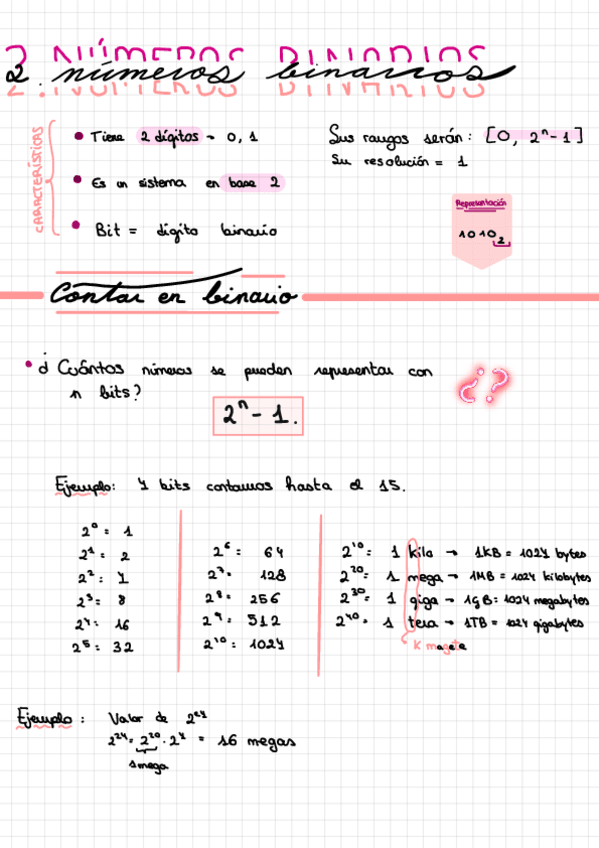 2. NÚMEROS BINARIOS
2. números binarios
CARACTERÍSTICAS
• Tiene 2 dígitos → 0, 1
• Es un sistema en base 2
• Bit = dígito binario
Sus rangos serán: [0, 2ⁿ-1]
Su resolución = 1
Representación
1010₂
Contar en binario
• ¿Cuántos números se pueden representar con
n bits?
2ⁿ - 1.
¿?
Ejemplo: 4 bits contamos hasta el 15.
2⁰ = 1
2¹ = 2
2² = 4
2³ = 8
2⁴ = 16
2⁵ = 32
2⁶ = 64
2⁷ = 128
2⁸ = 256
2⁹ = 512
2¹⁰ = 1024
2¹⁰ = 1 kila → 1KB = 1024 bytes
2²⁰ = 1 mega → 1MB = 1024 kilobytes
2³⁰ = 1 giga → 1GB = 1024 megabytes
2⁴⁰ = 1 tera → 1TB = 1024 gigabytes
K magete
Ejemplo: Valor de 2²⁴
2²⁴ = 2²⁰ · 2⁴ = 16 megas
1 mega